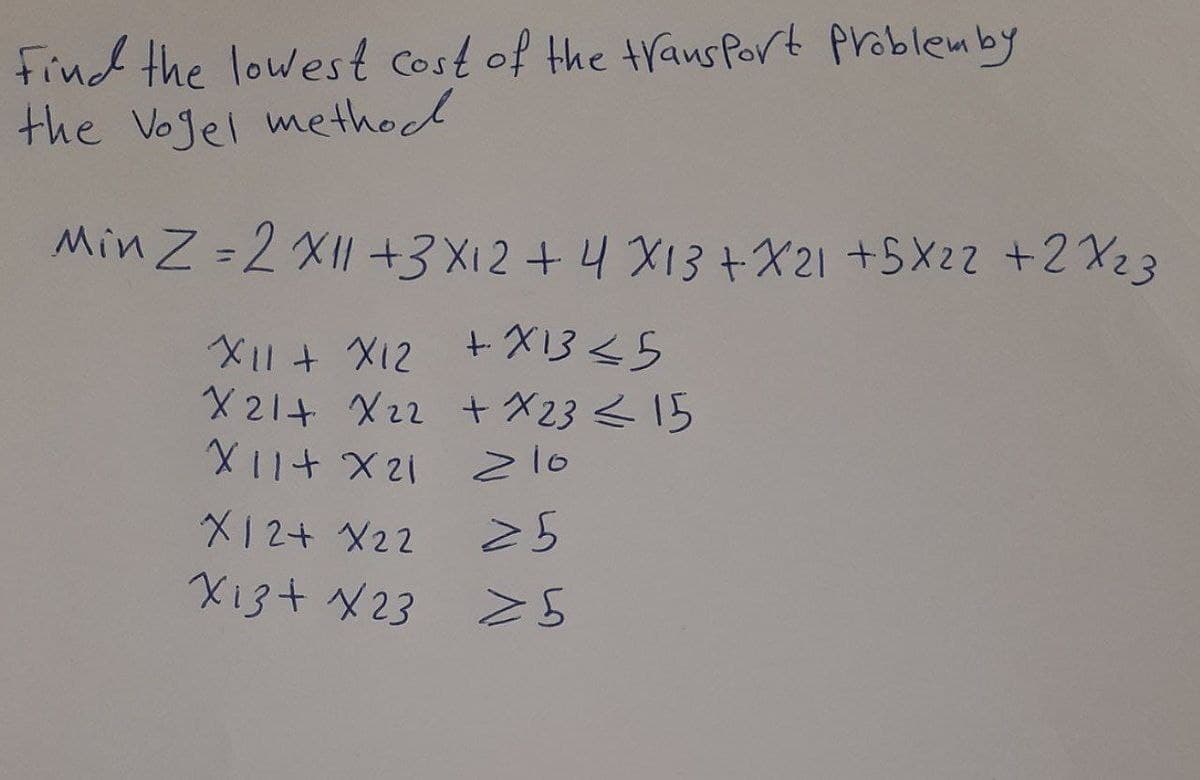 Find the lowest cost of the transport problem by
the Vogel method
Min Z = 2 X11 + 3 X12 + 4 X13 + X21 + 5X22 + 2X23
X11 + X12 + X13 ≤ 5
X21 + X22 + X23 ≤ 15
X11 + X21 ≥ 10
X12 + X22 ≥ 5
X13 + X23 ≥ 5